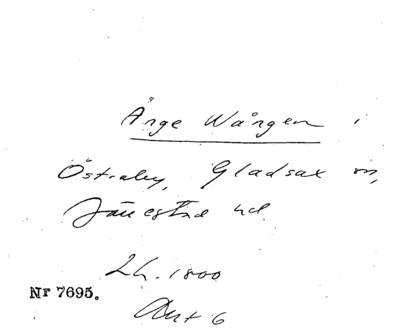 Änge Wången i
Östraby, Gladsax sn,
Järrestad hd
Lh. 1800
Nr 7695.
Akt 6